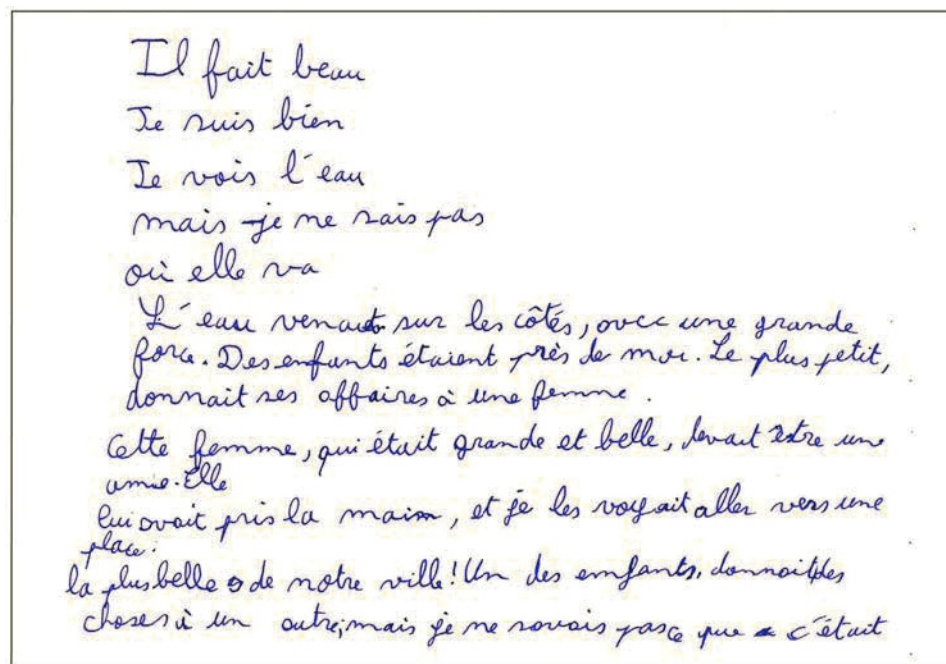 Il fait beau
Je suis bien
Je vois l'eau
mais je ne sais pas
où elle va
L'eau venait sur les côtés, avec une grande
force. Des enfants étaient près de moi. Le plus petit,
donnait ses affaires à une femme.
Cette femme, qui était grande et belle, devait être une
amie. Elle
lui avait pris la main, et je les voyait aller vers une
place:
la plus belle de notre ville! Un des enfants, donnait des
choses à un autre, mais je ne savais pas ce que c'était